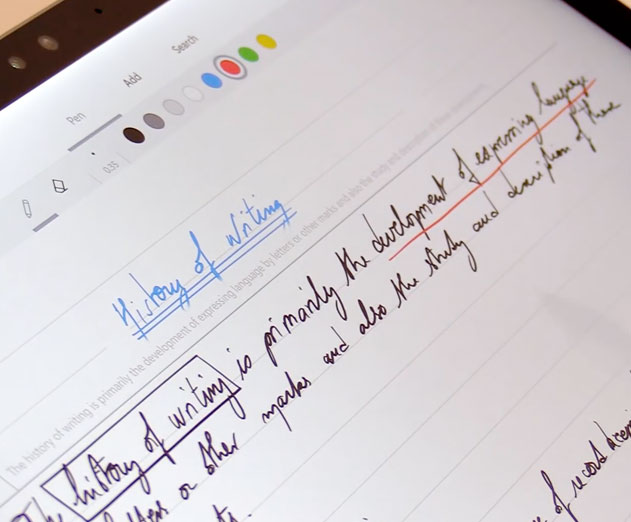 Pen Add Search
0.35
History of Writing
The history of writing is primarily the development of expressing language by letters or other marks and also the study and description of these
history of writing is primarily the development of expressing language
letters or other marks and also the study and description of these
of record